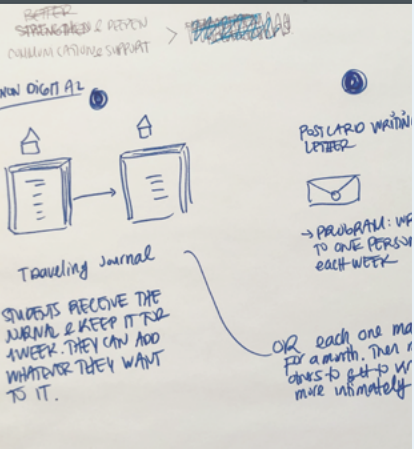 BETTER
STRENGTHEN & DEEPEN
COMMUNICATIONS & SUPPORT >
NON DIGITAL
Traveling Journal
STUDENTS RECEIVE THE
JOURNAL & KEEP IT FOR
1 WEEK. THEY CAN ADD
WHATEVER THEY WANT
TO IT.
POSTCARD WRITING
LETTER
→ PROGRAM:
TO ONE PERSON
each WEEK
OR each one
for a month. Then
to get to
more intimately